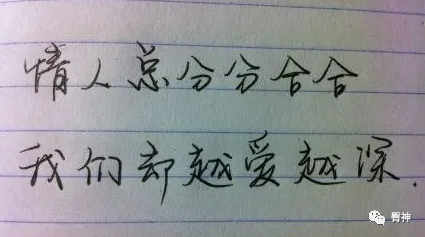 情人总分分合合
我们却越爱越深.
胃神